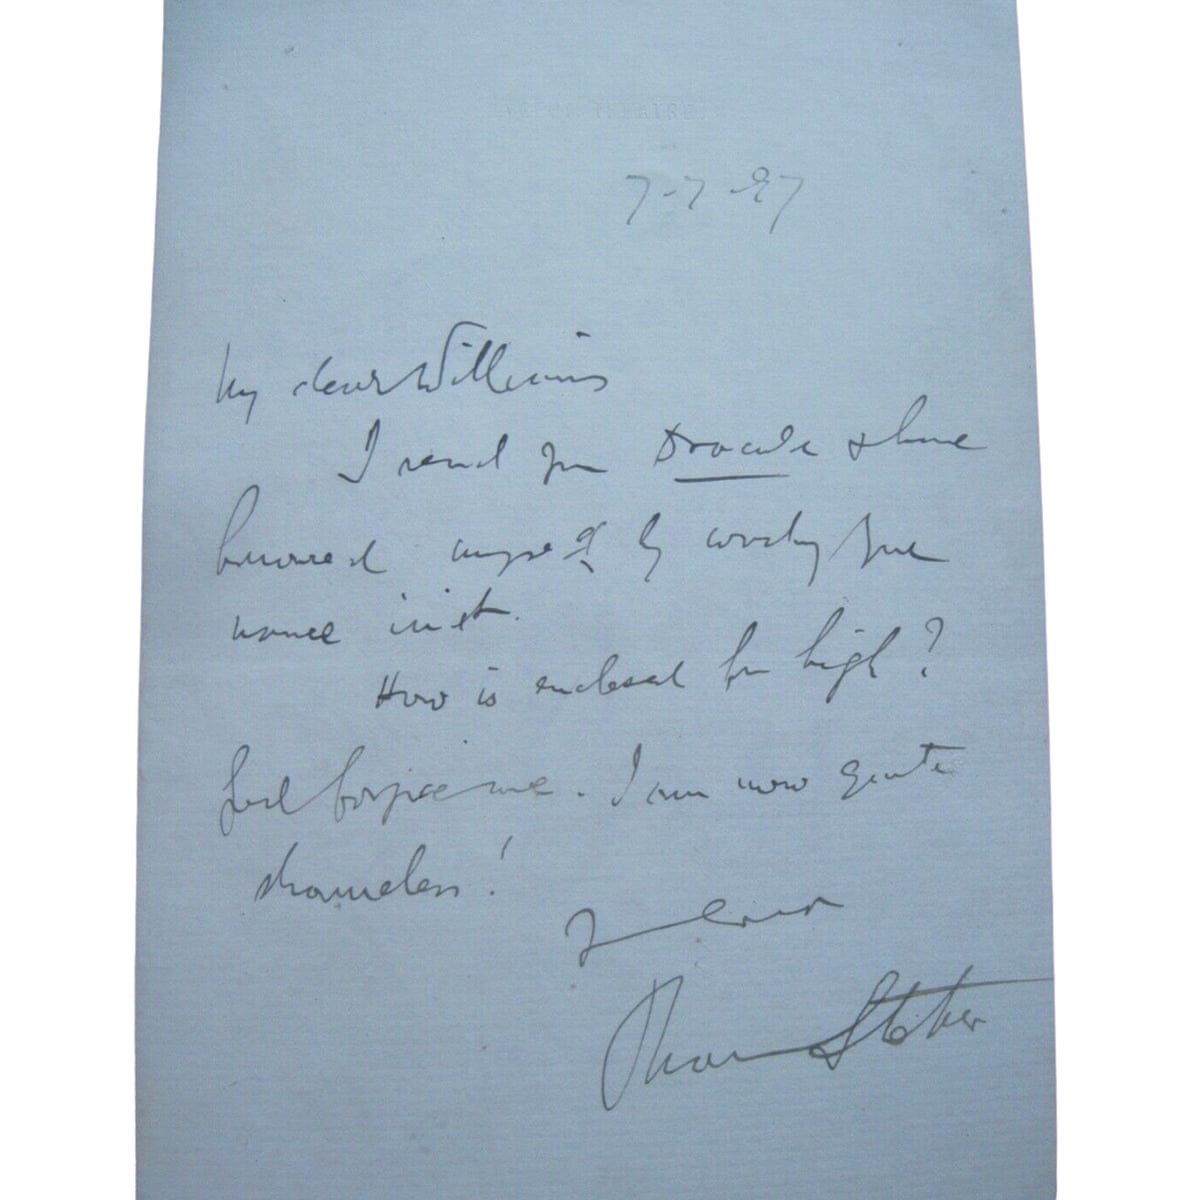 LYCEUM THEATRE.
7-7-97
My dear Williams
I send you Dracula & have
honoured myself by writing your
name in it.
How is enclosed for high?
Lord forgive me. I am now quite
shameless!
Yours ever
Bram Stoker